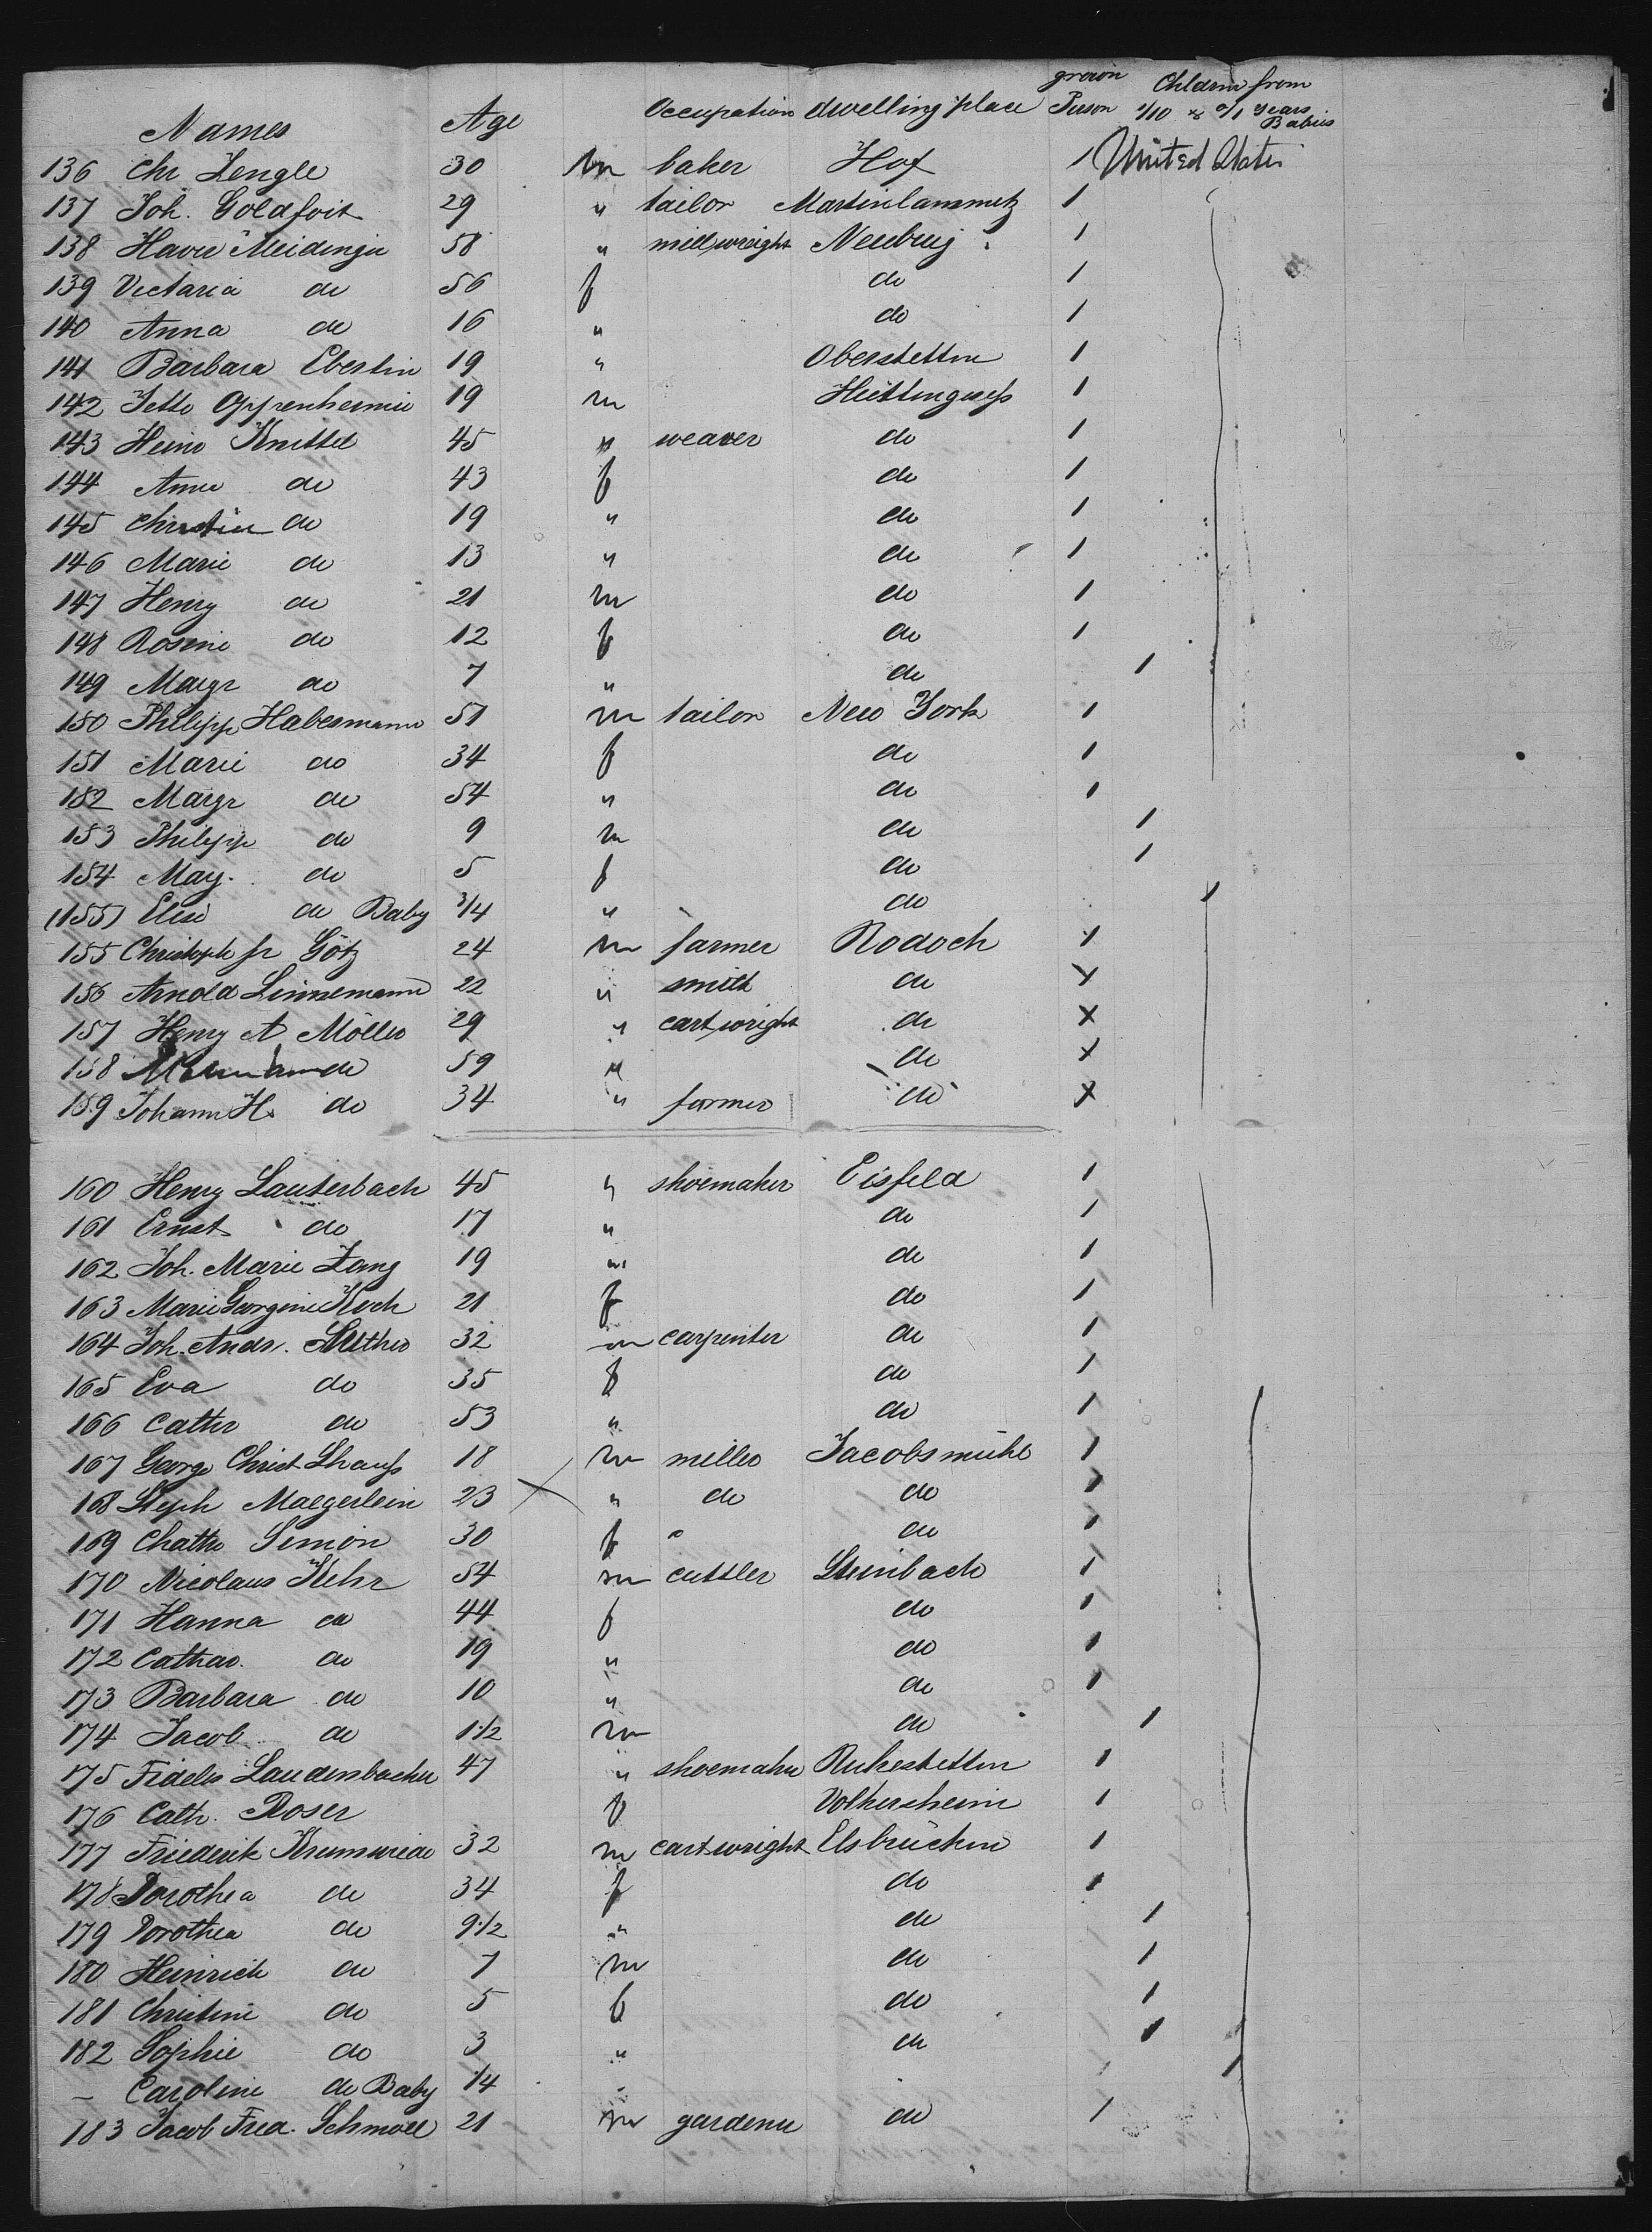 Names Age Occupation dwelling place grown Person Children from 1/10 & 0/1 Years Babies
136 Chr Zengle 30 m baker Hof 1 United States
137 Joh. Goldfoit 29 " tailor Martinlammitz 1
138 Haver Meidinger 58 " millwright Neuburg 1
139 Victoria do 56 f do 1
140 Anna do 16 " do 1
141 Barbara Eberlin 19 " Oberstetten 1
142 Jette Oppenheimer 19 m 1
143 Heinr Knittel 45 " weaver do 1
144 Anna do 43 f do 1
145 Christin do 19 " do 1
146 Marie do 13 " do 1
147 Henry do 21 m do 1
148 Rosine do 12 f do 1
149 Margr do 7 " do 1
150 Philipp Habermann 51 m tailor New York 1
151 Marie do 34 f do 1
152 Margr do 54 " do 1
153 Philipp do 9 m do 1
154 Marg. do 5 f do 1
(155) Elise do Baby 3/4 " do 1
155 Christoph fr Götz 24 m farmer Rodach 1
156 Arnold Linnemann 22 " smith do 1
157 Henry A Möller 29 " cartwright do x
158 do 59 " do x
159 Johann H. do 34 " farmer do x
160 Henry Lauterbach 45 " shoemaker Eisfeld 1
161 Ernst do 17 " do 1
162 Joh. Marie Zang 19 " do 1
163 Marie Georgine Koch 21 f do 1
164 Joh. Andr. Luther 32 m carpenter do 1
165 Eva do 35 f do 1
166 Cathr do 53 " do 1
167 George Christ Shauss 18 m miller Jacobsmühl 1
168 Steph Maegerlein 23 x " do do 1
169 Chathr Simon 30 f do 1
170 Nicolaus Kehr 54 m cuttler Steinbach 1
171 Hanna do 44 f do 1
172 Cathar. do 19 " do 1
173 Barbara do 10 " do 1
174 Jacob do 1 1/2 m do 1
175 Fidelis Laudenbacher 47 " shoemaker 1
176 Cath. Roser f Volkersheim 1
177 Friederik Krumwiede 32 m cartwright Elsbrüchen 1
178 Dorothea do 34 f do 1
179 Dorothea do 9 1/2 " do 1
180 Heinrich do 7 m do 1
181 Christine do 5 f do 1
182 Sophie do 3 " do 1
– Caroline do Baby 1/4 1
183 Jacob Fred. Schmoll 21 m gardener do 1